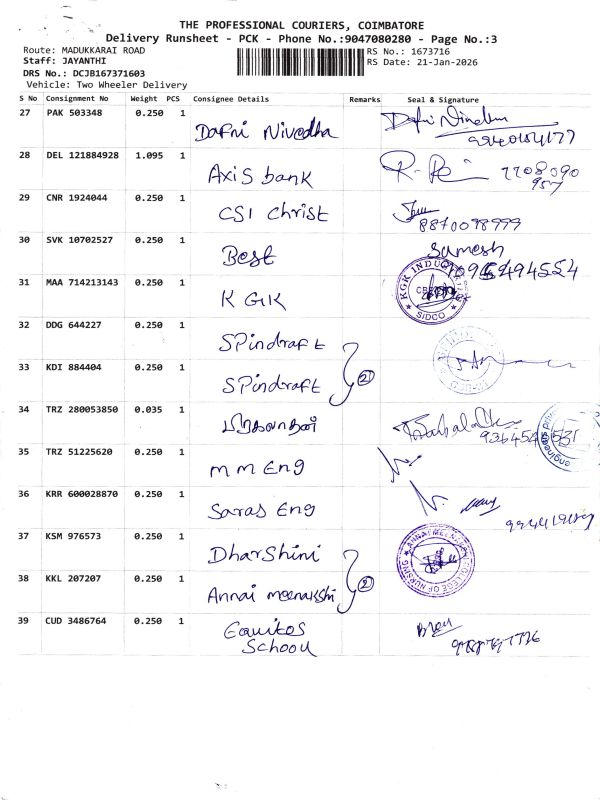 THE PROFESSIONAL COURIERS, COIMBATORE
Delivery Runsheet - PCK - Phone No.:9047080280 - Page No.:3
Route: MADUKKARAI ROAD
RS No.: 1673716
Staff: JAYANTHI
RS Date: 21-Jan-2026
DRS No.: DCJB167371603
Vehicle: Two Wheeler Delivery
S No Consignment No Weight PCS Consignee Details Remarks Seal & Signature
27 PAK 503348 0.250 1 Dafni Nivedha
28 DEL 121884928 1.095 1 Axis bank
29 CNR 1924044 0.250 1 CSI Christ 8870098999
30 SVK 10702527 0.250 1 Best
31 MAA 714213143 0.250 1 KGK KGK SIDCO
32 DDG 644227 0.250 1 SPindraft
33 KDI 884404 0.250 1 SPindraft 2
34 TRZ 280053850 0.035 1
35 TRZ 51225620 0.250 1 MM Eng
36 KRR 600028870 0.250 1 Saras Eng
37 KSM 976573 0.250 1 Dharshini
38 KKL 207207 0.250 1 Annai meenakshi 2 COLLEGE OF NURSING
39 CUD 3486764 0.250 1